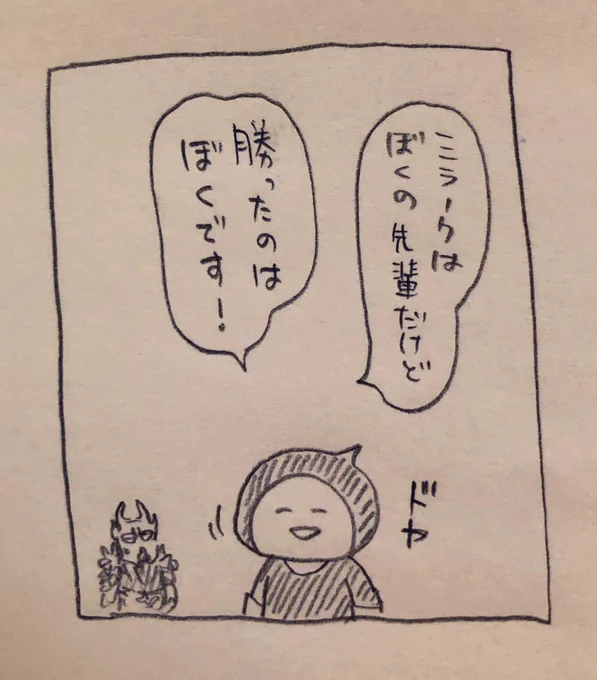 ミラークは
ぼくの先輩だけど
勝ったのは
ぼくです!
ドヤ